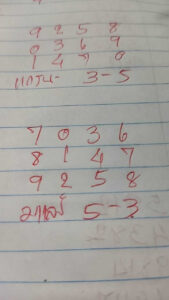 9 2 5 8
0 3 6 9
1 4 7 0
3-5
7 0 3 6
8 1 4 7
9 2 5 8
5-3